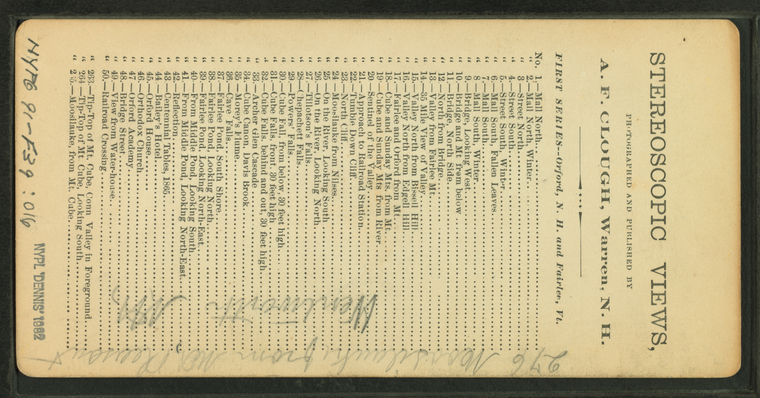 STEREOSCOPIC VIEWS,
PHOTOGRAPHED AND PUBLISHED BY
A. F. CLOUGH, Warren, N. H.
FIRST SERIES—Orford, N. H. and Fairlee, Vt.
No. 1.—Mall North
" 2.—Mall North, Winter
" 3.—Street North
" 4.—Street South
" 5.—Street South, Winter
" 6.—Mall South, Fallen Leaves
" 7.—Mall South
" 8.—Mall South, Winter
" 9.—Bridge, Looking West
" 10.—Bridge and Mt. from below
" 11.—Bridge, North Side
" 12.—North from Bridge
" 13.—Valley from Fairlee Mt.
" 14.—35 Mile View of Valley
" 15.—Valley North from Bissell Hill
" 16.—Valley North from Edgell Hill
" 17.—Fairlee and Orford from Mt.
" 18.—Cube and Sunday Mts. from Mt.
" 19.—Cube and Sunday Mts. from River
" 20.—Sentinel of the Valley
" 21.—Approach to Railroad Station
" 22.—Tumble Down Cliff
" 23.—North Cliff
" 24.—Mooslauke from Nilson
" 25.—On the River, Looking South
" 26.—On the River, Looking North
" 27.—Tillotson's Falls
" 28.—Chepachett Falls
" 29.—Powers' Falls
" 30.—Cube Fall, from below, 30 feet high
" 31.—Cube Falls, front, 30 feet high
" 32.—Cube Falls, behind and out, 30 feet high
" 33.—Archer Glen Cascade
" 34.—Cube Canon, Davis Brook
" 35.—Morey's Flume
" 36.—Cave Falls
" 37.—Fairlee Pond, South Shore
" 38.—Fairlee Pond, Looking North
" 39.—Fairlee Pond, Looking North-East
" 40.—From Middle Pond, Looking South
" 41.—From Middle Pond, Looking North-East
" 42.—Reflection
" 43.—Centennial Tables, 1865
" 44.—Bailey's Hotel
" 45.—Orford House
" 46.—Orthodox Church
" 47.—Orford Academy
" 48.—Bridge Street
" 49.—View at Water-house
" 50.—Railroad Crossing
" 263.—Tip-Top of Mt. Cube, Conn Valley in Foreground
" 264.—Tip-Top of Mt. Cube, Looking South
" 265.—Mooslauke, from Mt. Cube
Wentworth
N.H.
276 Mooslauke from Mt. Pleasant
NYPG 91-F39 : 016
NYPL 'DENNIS' 1882